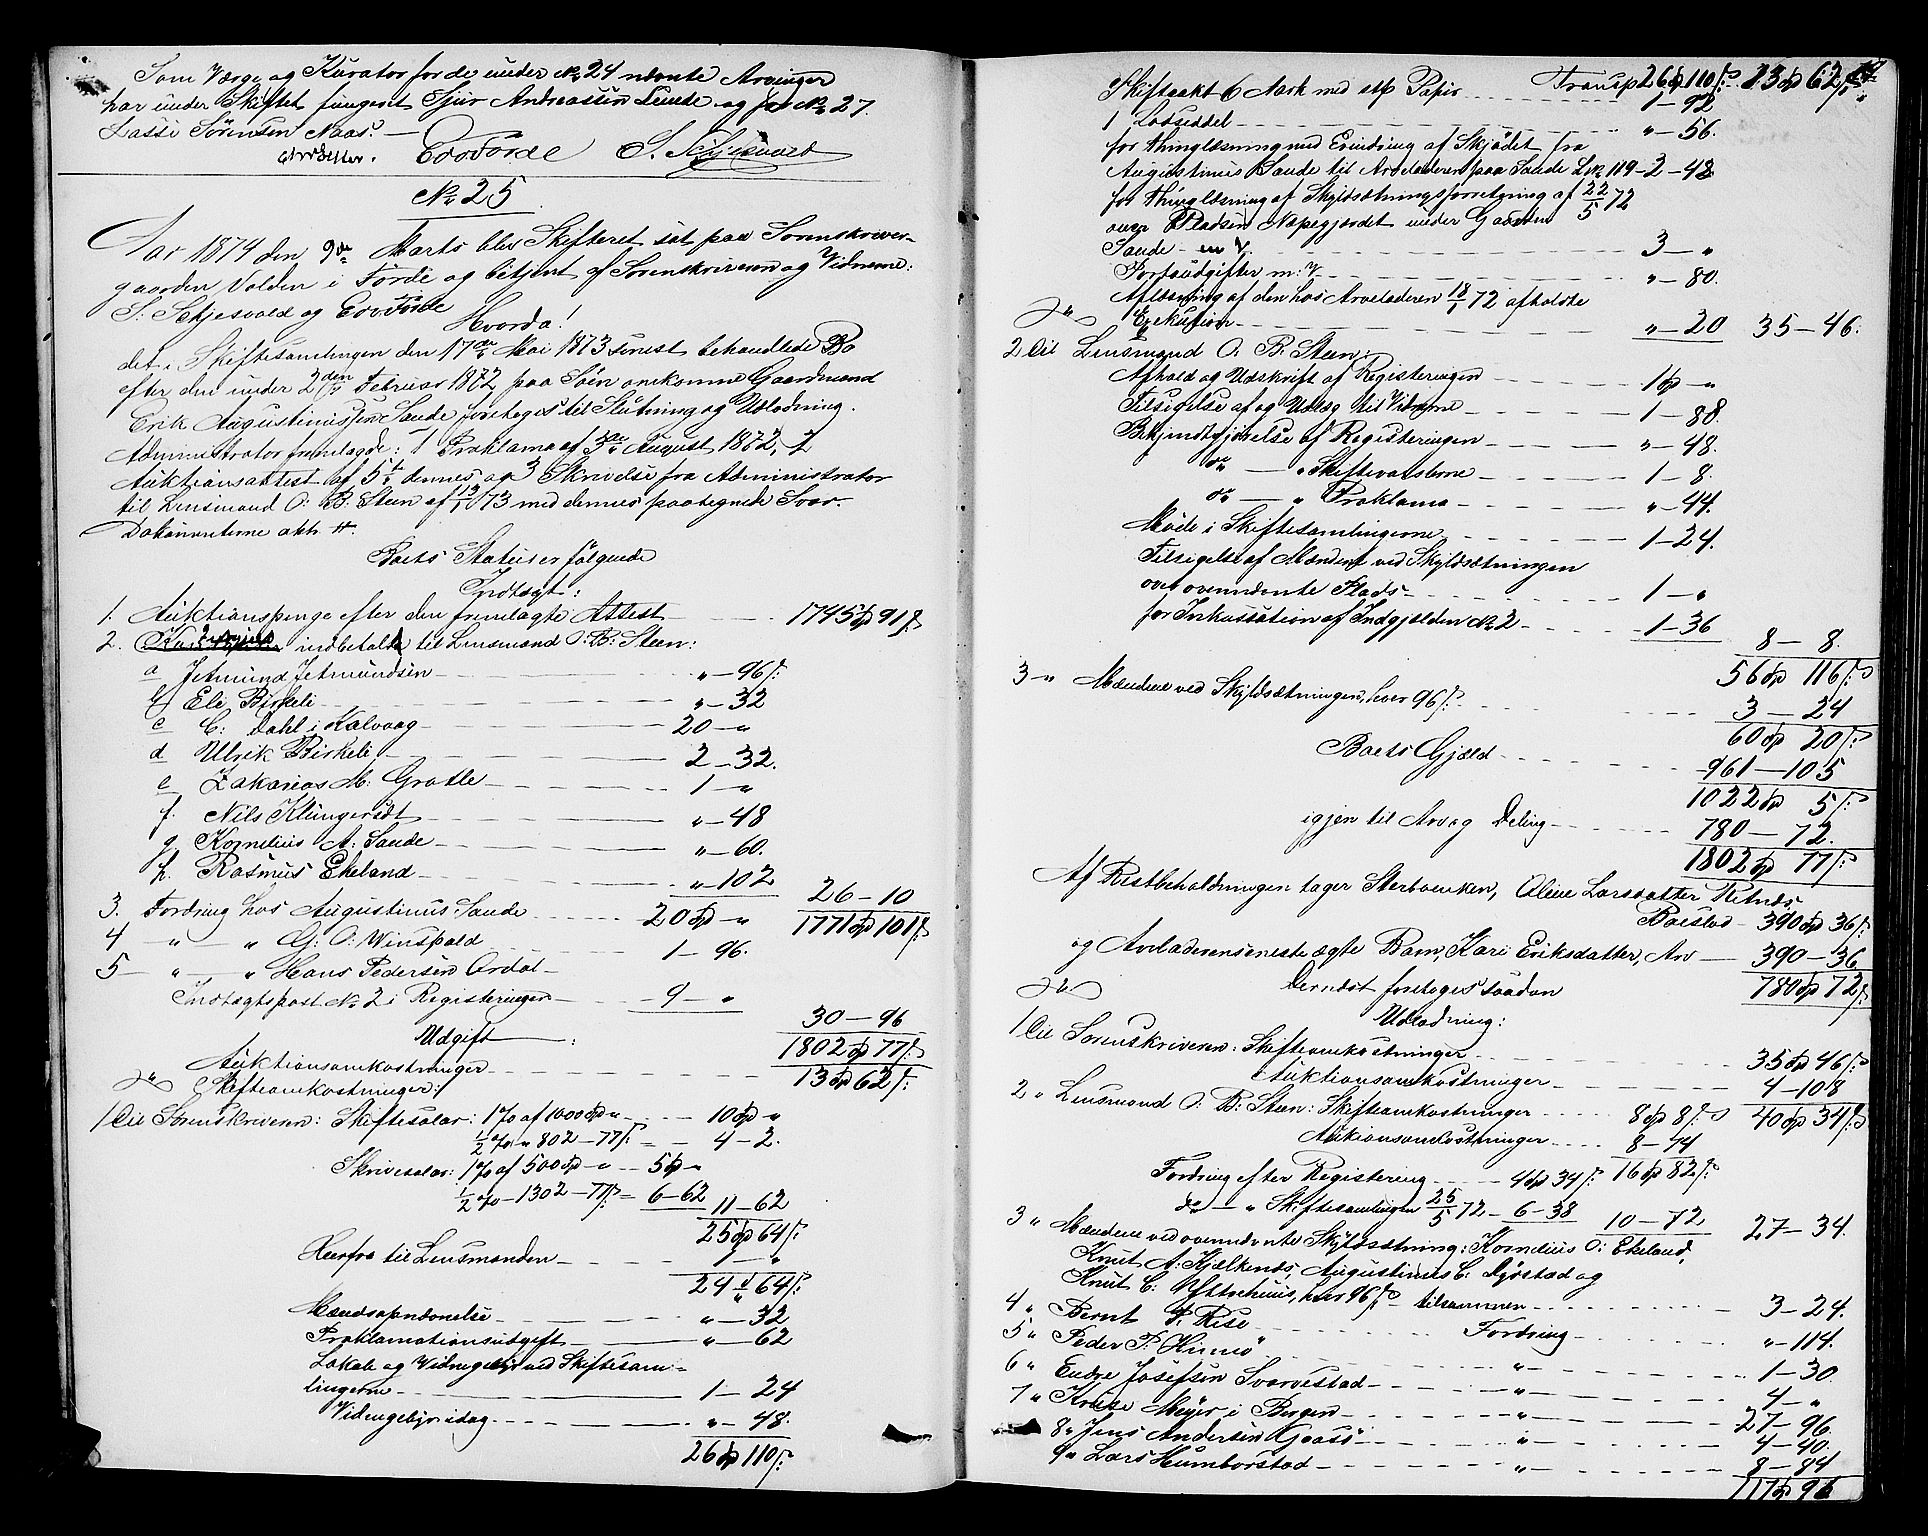 Som Værge og Kurator for de under No 24 nævnte Arvinger
har under Skiftet fungeret Sjur Andreassen Lunde og for No 27
Lasse Sörensen Naas. —
EovForde S. Schjesvold
No 25
Aar 1874 den 9de Marts blev Skifteret sat paa Sorenskriver-
gaarden Volden i Förde og betjent af Sorenskriveren og Vidnerne:
S. Schjesvold og EovForde
Hvorda!
det i Skiftesamlingen den 17de Mai 1873 senest behandlede Bo
efter den under 2den Februar 1872 paa Söen omkomne Gaardmand
Erik Augustinussen Sande foretoges til Slutning og Udlodning.
Administrator fremlagde: 1 Proklama af 3die August 1872, 2
Auktionsattest af 5te dennes og 3 Skrivelse fra Administrator
til Lensmand O. B. Steen af 13/1 73 med dennes paategnede Svar.
Dokumenterne akt. #.
Boets Status er fölgende
Indtægt:
1. Auktionspenge efter den fremlagte Attest — 1745 91
2. indbetalt til Lensmand O. B. Steen:
a Jetmund Jetmundsen — " — 96
b Eli Birkeli — " — 32
c C. Dahl i Kalvaag — 20 — "
d Ulrik Birkeli — 2 — 32.
e Zakarias M. Grotle — 1 — "
f. Nils Klungeröt — " — 48
g Kornelius A. Sande — " — 60.
h. Rasmus Ekeland — " — 102 26 — 10
3. Fordring hos Augustinus Sande 20 — " 1771 101
4 " — " G. O. Winspold 1 — 96.
5 — " — " Hans Pedersen Ardal —
Indtægtspost No 2 i Registeringen — 9 — "
30 — 96
Udgift: 1802 77
Auktionsomkostninger — 13 62
" Skifteomkostninger:
1 Til Sorenskriveren: Skiftesalær: 1% af 1000 " — 10 "
1/2 % " 802 — 77 — 4 — 2.
Skrivesalær: 1% af 500 " — 5 "
1/2 % — 1302 — 77 — 6 — 62 11 — 62
25 64
Herfra til Lensmanden — 1 — "
24 " 64
Mandsopnævnelse — " — 32
Proklamationsudgift — " — 62
Lokale og Vidnegebyr ved Skiftesam-
lingerne — 1 — 24
Vidnegebyr idag — " — 48.
26 110
Transp 26 110 13 62
Skifteakt 6 Ark med stp Papir — 1 — 92
1 Lodseddel — " — 56.
for Thinglæsning med Erindring af Skjödet fra
Augustinus Sande til Arveladeren paa Sande L No 119 — 2 — 48
for Thinglæsning af Skyldsætningsforretning af 22/5 72
over Pladsen Næpegjerdet under Gaarden
Sande — 3 — "
Portoudgifter m. V — " — 80.
Aflæsning af den hos Arveladeren 18/1 72 afholdte
Exekution — " — 20 35 — 46.
2 Til Lensmand O. B. Steen:
Afhold og Udskrift af Registeringen — 1 — "
Tilsigelse af og Udlæg til Vidnerne — 1 — 88.
Bekjendtgjörelse af Registeringen — " — 48.
do — " Skiftevarslerne — 1 — 8.
do — " Proklama — " — 44.
Möde i Skiftesamlingerne — 1 — 24.
Tilsigelse af Mændene ved Skyldsætningen
over ovennævnte Plads — 1 — "
for Inkassation af Indgjælden No 2 — 1 — 36
8 — 8.
56 116
3 " Mændene ved Skyldsætningen, hver 96 3 — 24
60 20
Boets Gjæld — 961 — 105
1022 5
igjen til Arv og Deling — 780 — 72.
1802 77
Af Restbeholdningen tager Sterboenken, Oline Larsdatter Refnæs
Boeslod — 390 36
og Arveladerens eneste ægte Barn, Kari Eriksdatter, Arv — 390 — 36
780 72
Dernæst foretoges saadan
Udlodning:
1 Til Sorenskriveren: Skifteomkostninger — 35 46
Auktionsomkostninger — 4 — 108
2 " Lensmand O. B. Steen: Skifteomkostninger 8 8 40 34
Auktionsomkostninger — 8 — 74
Fordring efter Registering — 4 34 16 82
do — " Skiftesamlingen 25/5 72 — 6 — 38 10 — 72 27 — 34.
3 " Mændene ved ovennævnte Skyldsætning: Kornelius O. Ekeland,
Knut A. Hjælkenæs, Augustinus C. Myrstad og
Knut C. hver 96 — tilsammen — 3 — 24.
4 " Bernt P. Rise Fordring — " — 114.
5 " Peder P. Hinnö " — 1 — 30
6 " Endre Josefsen Svarvestad — " — 4 — "
7 " Krüse Meyer i Bergen — " — 27 — 96.
8 " Jens Andersen Goass — " — 4 — 40.
9 " Lars Humborstad — " — 8 — 84
117 96